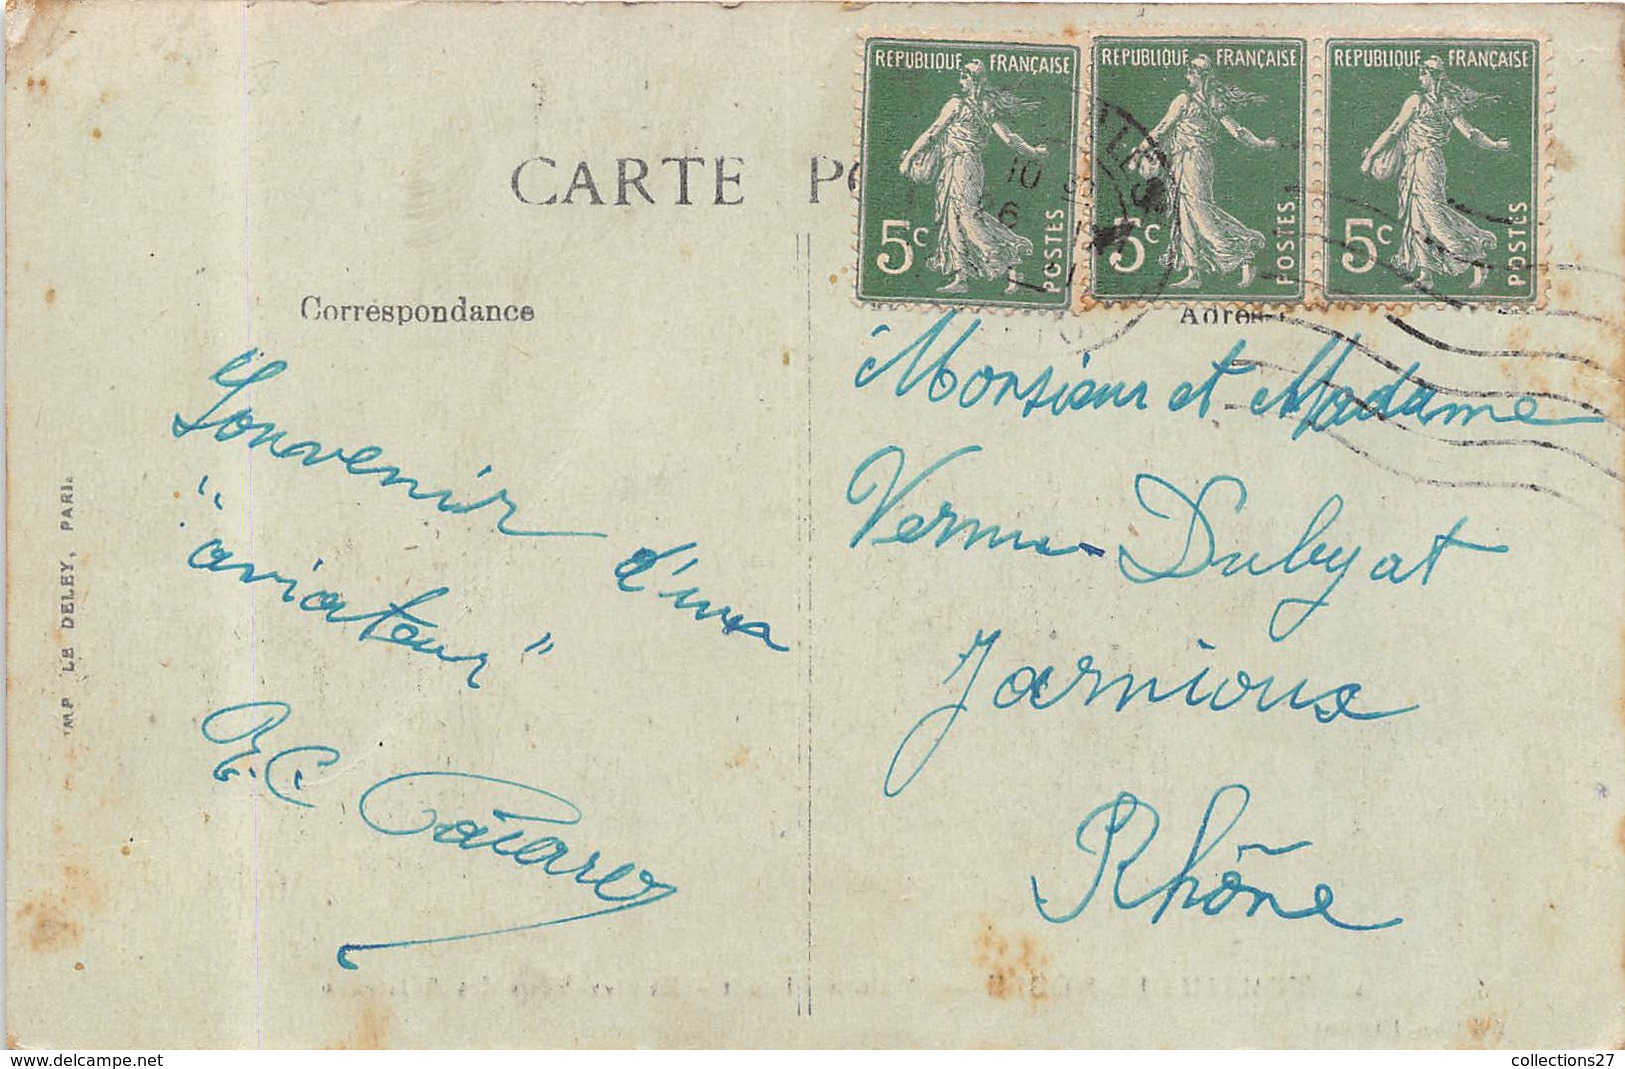 REPUBLIQUE FRANÇAISE
5c
POSTES
REPUBLIQUE FRANÇAISE
5c
POSTES
REPUBLIQUE FRANÇAISE
5c
POSTES
CARTE PO
Correspondance
Souvenir d'un
"aviateur"
IMP LE DELEY, PARIS
Monsieur et Madame
Dubyat
Jarnioux
Rhône
www.delcampe.net
collections27